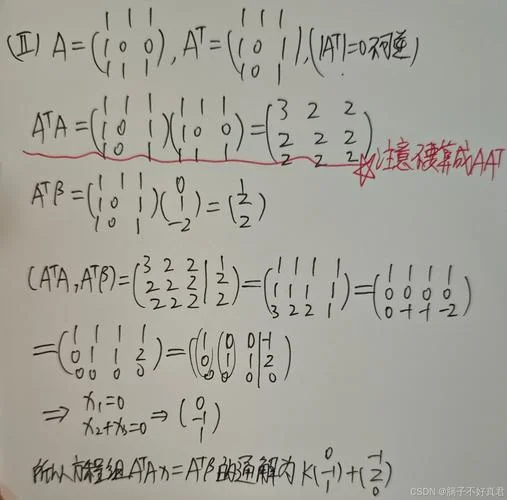 (Ⅱ) A=(1 1 1; 1 0 0; 1 1 1), Aᵀ=(1 1 1; 1 0 1; 1 0 1), (|Aᵀ|=0不可逆)
AᵀA=(1 1 1; 1 0 1; 1 0 1)(1 1 1; 1 0 0; 1 1 1)=(3 2 2; 2 2 2; 2 2 2)
☆注意不要算成AAᵀ
Aᵀβ=(1 1 1; 1 0 1; 1 0 1)(0; 1; -2)=
(AᵀA, Aᵀβ)=(3 2 2 | 1; 2 2 2 | 2; 2 2 2 | 2)=(1 1 1 1; 1 1 1 1; 3 2 2 1)=(1 1 1 1; 0 0 0 0; 0 -1 -1 -2)
=(1 1 1 1; 0 1 1 2; 0 0 0 0)=(1 0 0 | -1; 0 1 1 | 2; 0 0 0 | 0)
⇒ x₁=0
x₂+x₃=0 ⇒ (0; -1; 1)
所以方程组AᵀAx=Aᵀβ的通解为 K(0; -1; 1)+(-1; 2; 0)
CSDN @脑子不好真君